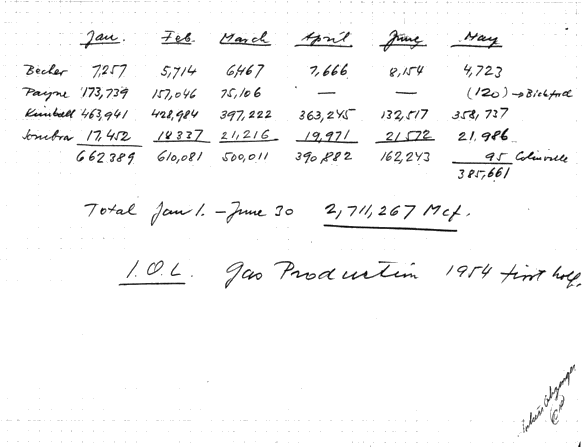 Jan. Feb. March April June May
Becher 7,257 5,714 6,467 7,666 8,154 4,723
Payne 173,739 157,046 75,106 — — (120) → Bickford
Kimball 463,941 428,984 397,222 363,245 132,517 358,737
Sombra 17,452 18337 21,216 19,971 21572 21,986
662389 610,081 500,011 390,882 162,243 95 Colinville
385,661
Total Jan 1. – June 30 2,711,267 Mcf.
I.O.L. Gas Production 1954 first half.